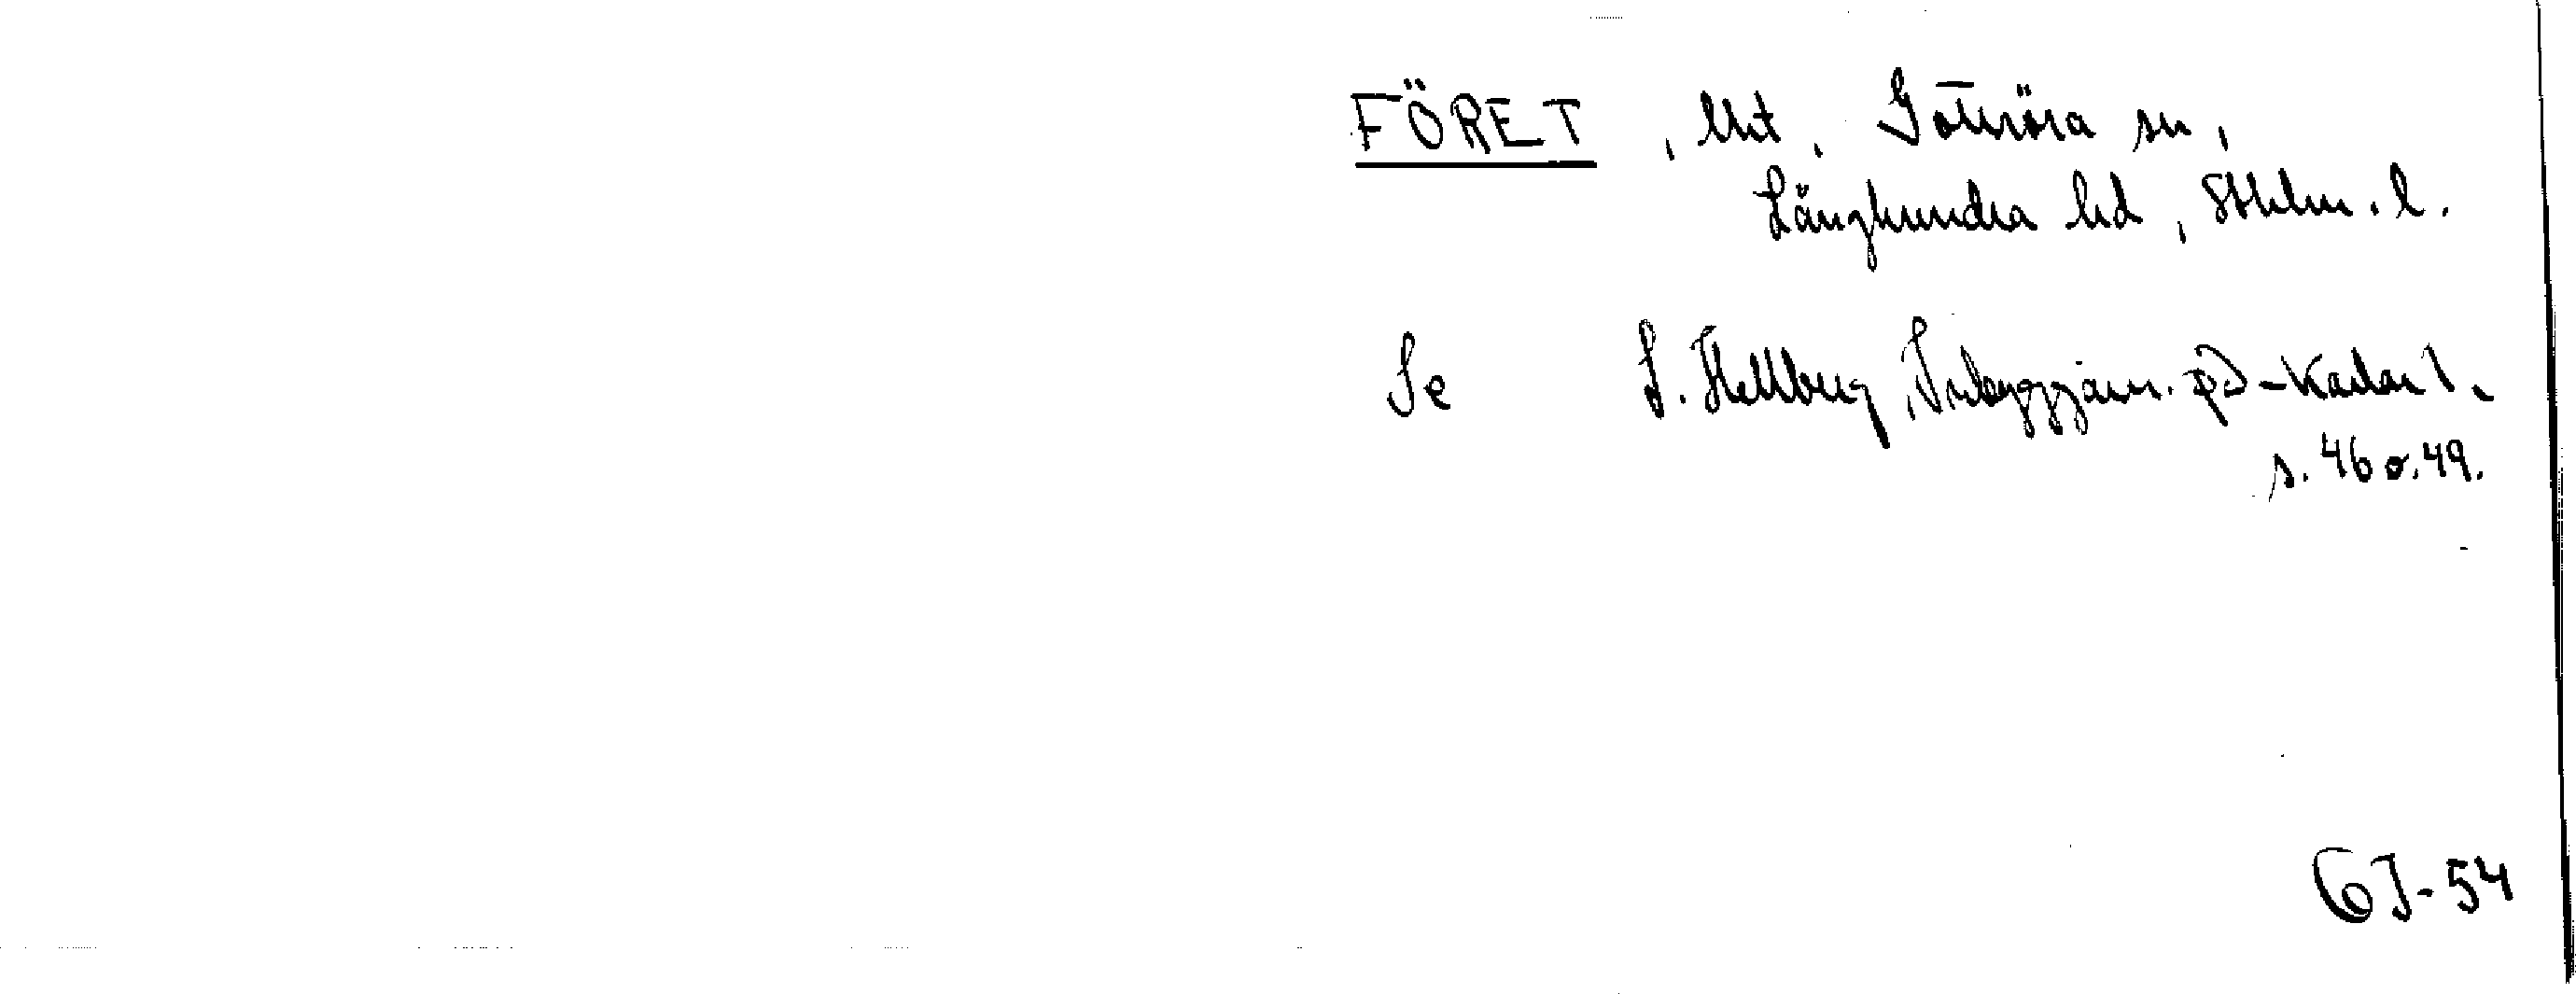 FÖRET, Uht, Götröra sn,
Långhundra hd, Sthlm. l.
Se L. Hellberg, Inbyggjarn. på -karlar 1.
s. 46 o. 49.
GJ-54